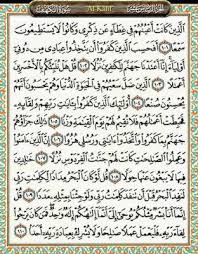 Al-Kahf
ٱلَّذِينَ كَانَتْ أَعْيُنُهُمْ فِى غِطَآءٍ عَن ذِكْرِى وَكَانُوا۟ لَا يَسْتَطِيعُونَ
سَمْعًا ١٠١ أَفَحَسِبَ ٱلَّذِينَ كَفَرُوٓا۟ أَن يَتَّخِذُوا۟ عِبَادِى مِن دُونِىٓ
أَوْلِيَآءَ إِنَّآ أَعْتَدْنَا جَهَنَّمَ لِلْكَٰفِرِينَ نُزُلًا ١٠٢ قُلْ هَلْ نُنَبِّئُكُم بِٱلْأَخْسَرِينَ
أَعْمَٰلًا ١٠٣ ٱلَّذِينَ ضَلَّ سَعْيُهُمْ فِى ٱلْحَيَوٰةِ ٱلدُّنْيَا وَهُمْ يَحْسَبُونَ أَنَّهُمْ
يُحْسِنُونَ صُنْعًا ١٠٤ أُو۟لَٰٓئِكَ ٱلَّذِينَ كَفَرُوا۟ بِـَٔايَٰتِ رَبِّهِمْ وَلِقَآئِهِۦ فَحَبِطَتْ
أَعْمَٰلُهُمْ فَلَا نُقِيمُ لَهُمْ يَوْمَ ٱلْقِيَٰمَةِ وَزْنًا ١٠٥ ذَٰلِكَ جَزَآؤُهُمْ
جَهَنَّمُ بِمَا كَفَرُوا۟ وَٱتَّخَذُوٓا۟ ءَايَٰتِى وَرُسُلِى هُزُوًا ١٠٦ إِنَّ ٱلَّذِينَ ءَامَنُوا۟
وَعَمِلُوا۟ ٱلصَّٰلِحَٰتِ كَانَتْ لَهُمْ جَنَّٰتُ ٱلْفِرْدَوْسِ نُزُلًا ١٠٧
خَٰلِدِينَ فِيهَا لَا يَبْغُونَ عَنْهَا حِوَلًا ١٠٨ قُل لَّوْ كَانَ ٱلْبَحْرُ مِدَادًا لِّكَلِمَٰتِ رَبِّى
لَنَفِدَ ٱلْبَحْرُ قَبْلَ أَن تَنفَدَ كَلِمَٰتُ رَبِّى وَلَوْ جِئْنَا بِمِثْلِهِۦ مَدَدًا ١٠٩
قُلْ إِنَّمَآ أَنَا۠ بَشَرٌ مِّثْلُكُمْ يُوحَىٰٓ إِلَىَّ أَنَّمَآ إِلَٰهُكُمْ إِلَٰهٌ وَٰحِدٌ فَمَن كَانَ يَرْجُوا۟
لِقَآءَ رَبِّهِۦ فَلْيَعْمَلْ عَمَلًا صَٰلِحًا وَلَا يُشْرِكْ بِعِبَادَةِ رَبِّهِۦٓ أَحَدًۢا ١١٠